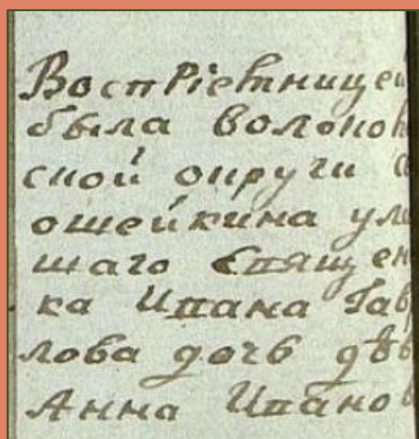 Воспріемницей
была волокол
ской округи с
ошейкина уме
шаго Священ
ка Ивана Гав
лова дочь дѣв
Анна Иванов